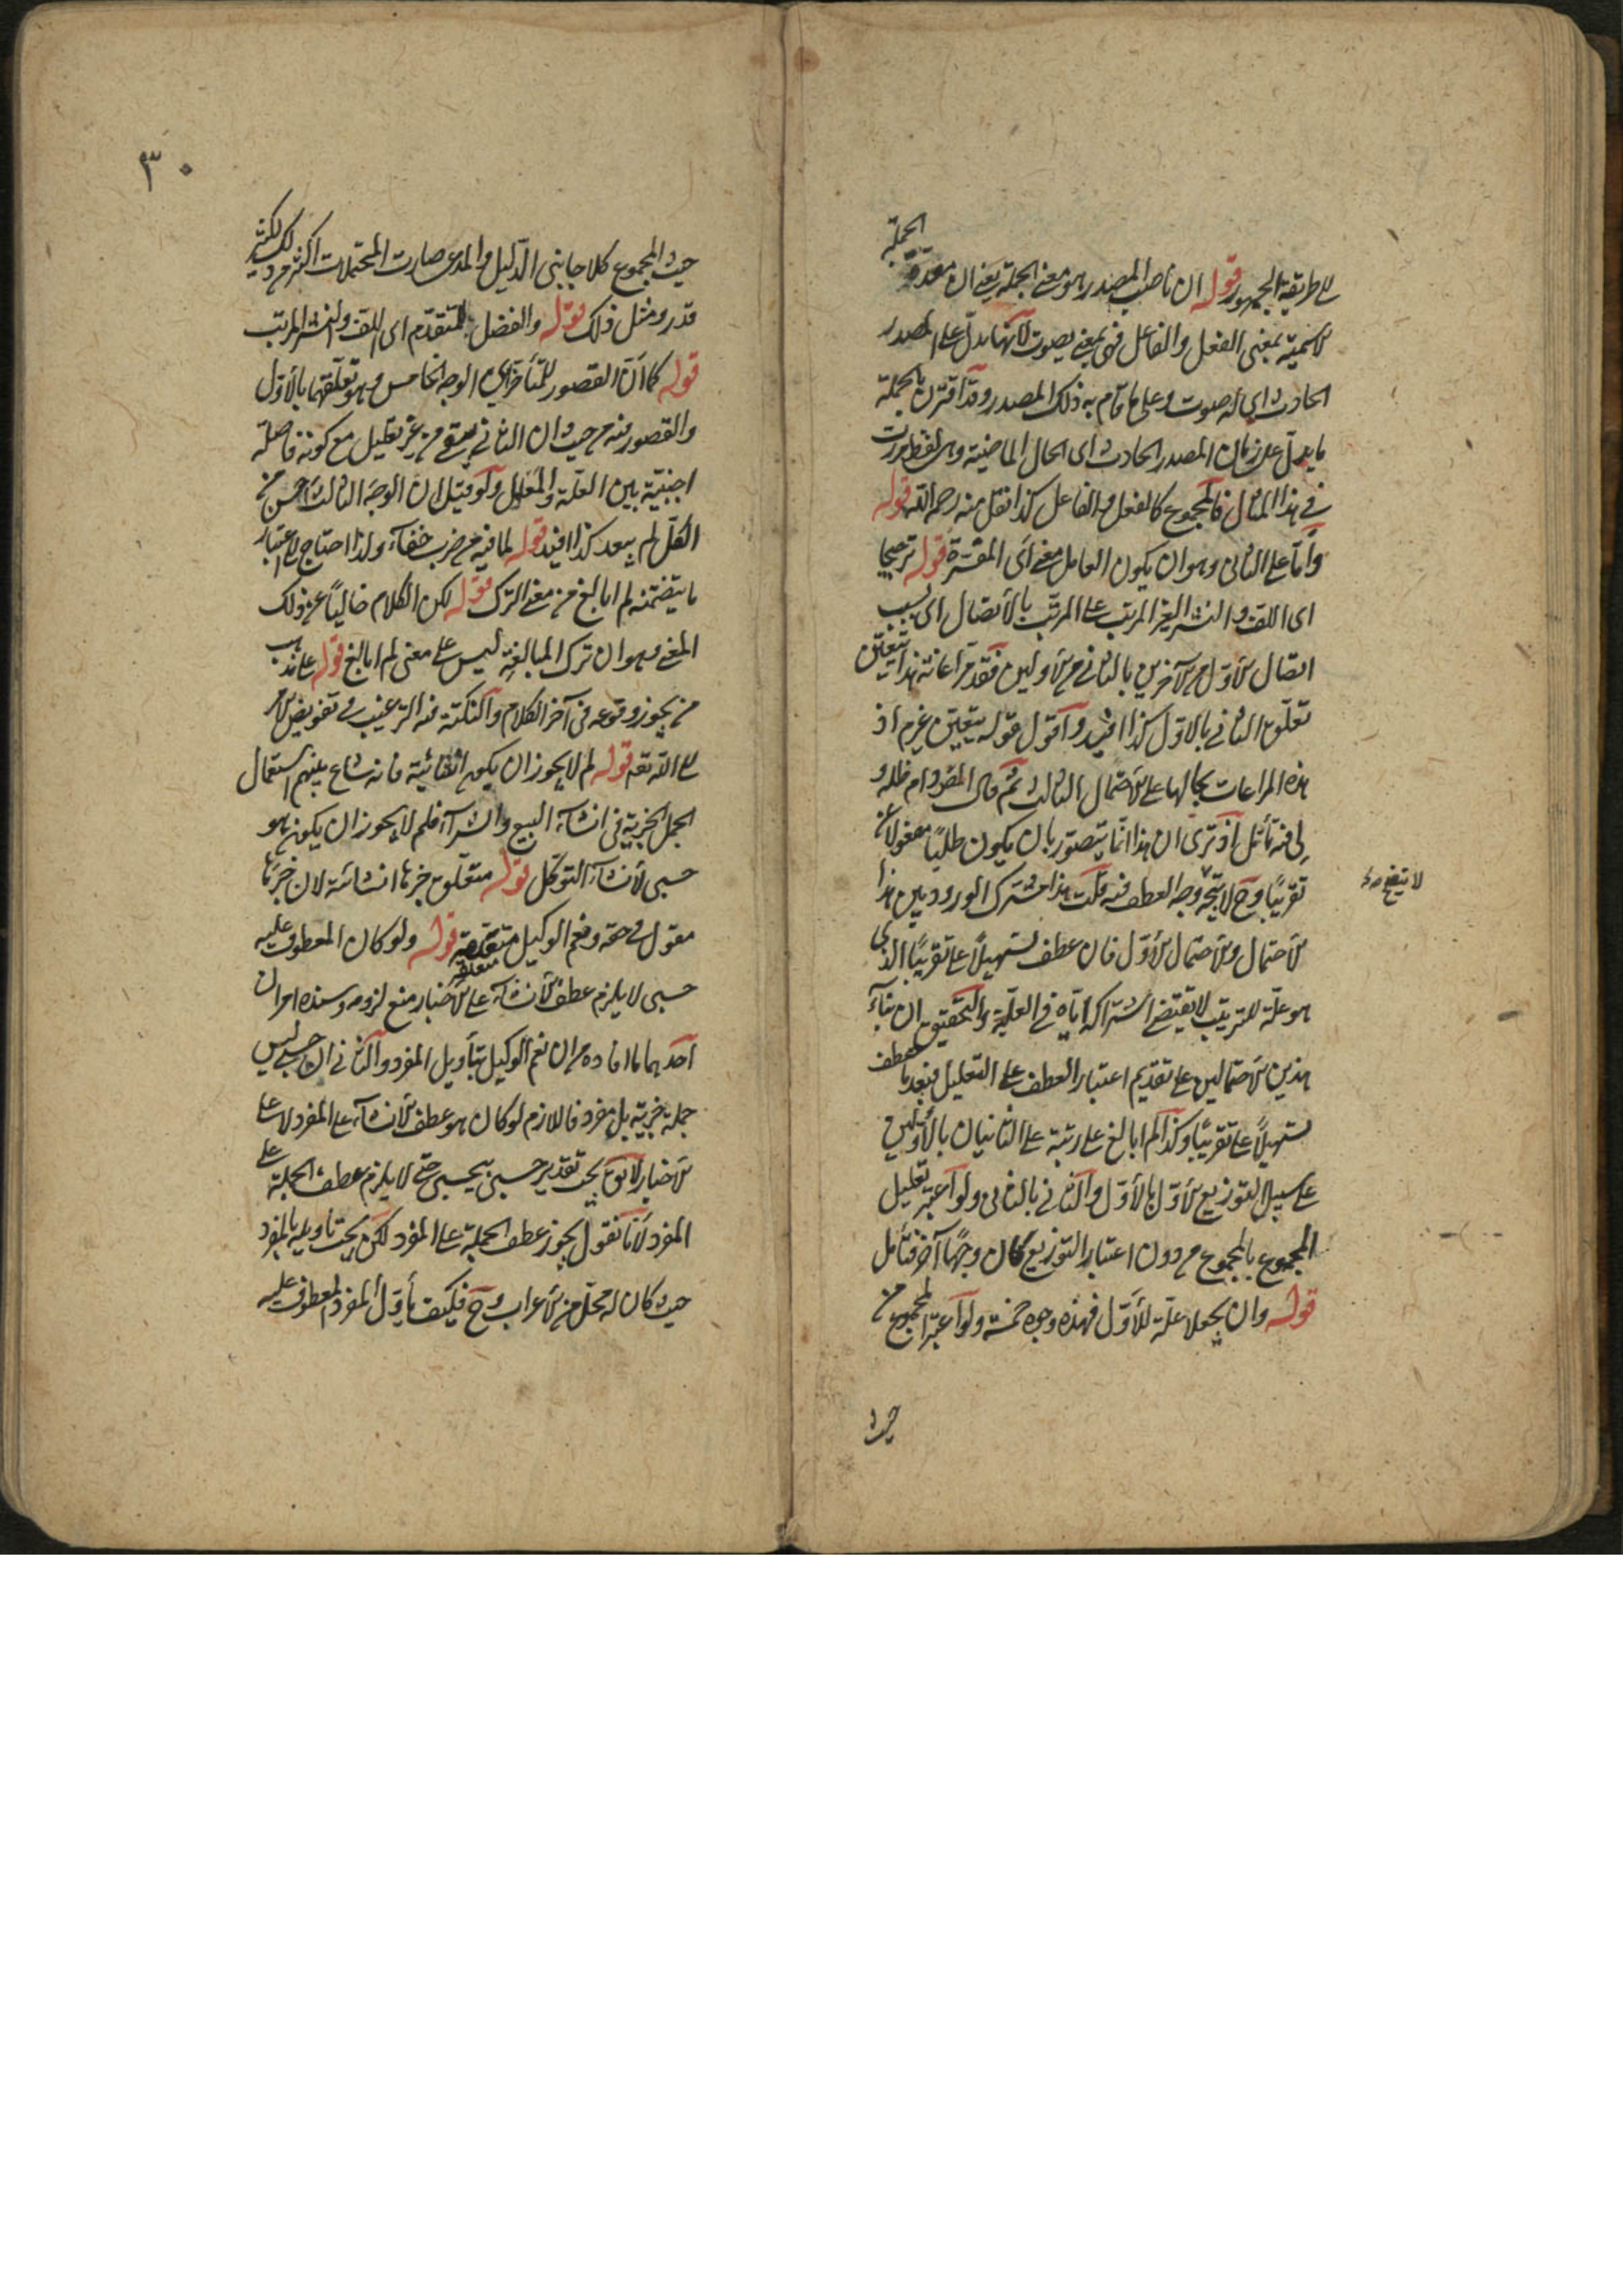 على طريقة الجمهور قوله ان ناصب المصدر هو معنى الجملة يعنى ان الجملة
الاسمية بمعنى الفعل والفاعل فهى بمعنى يصوت لانها تدل على المصدر
الحادث اى له صوت وعلى ما قام به ذلك المصدر وقد اقترن بالجملة
ما يدل على زمان المصدر الحادث اى الحال الماضية وهى لفظ مررت
فى هذا المثال فالمجموع كالفعل والفاعل كذا نقل منه رحمه الله قوله
واما على الثانى وهو ان يكون العامل معنى اى المفسرة قوله ترجيحا
اى اللف والنشر الغير المرتب على المرتب بالاتصال اى بسبب
اتصال الاول من الآخرين بالثانى من الاولين فقد مراعاته هذا يتعين
تعلق الثانى بالاول كذا افيد واقول قوله يتعين غير م اذ
هذه المراعات بحالها على الاحتمال الثالث ثم قال المص دام ظله و
لى فيه تأمل اذ ترى ان هذا انما يتصور بان يكون طلبا مفعولا عن
تقريبا وح لا يتجه وجه العطف فيه قلت هذا مشترك الورود بين هذا
لا يتضح
الاحتمال والاحتمال الاول فان عطف تسهيلا على تقريبا الذى
هو علة للترتيب لا يقتضى اشتراكه اياه فى العلية والتحقيق ان بناء
هذين الاحتمالين على تقديم اعتبار العطف على التعليل فبعد ما عطف
تسهيلا على تقريبا وكذا لم ابالغ على رتبة علل الثانيان بالاولين
على سبيل التوزيع الاول بالاول والثانى بالثانى ولو اعتبر تعليل
المجموع بالمجموع من دون اعتبار التوزيع لكان وجها آخر فتأمل
قوله وان يجعلا علة للاول فهذه وجوه خمسة ولو اعتبر المجموع من
حيث
٣٠
حيث المجموع كلا جانبى الدليل والمدعى صارت المحتملات اكثر من ذلك لكثير
قدر ومثل ذلك قوله والفضل للمتقدم اى اللف والنشر المرتب
قوله كما ان القصور للمتأخر اى الوجه الخامس وهو تعلقهما بالاول
والقصور فيه من حيث ان الثانى يبقى من غير تعليل مع كونه فاصلة
اجنبية بين العلة والمعلول ولو قيل ان الوجه الثالث احسن من
الكل لم يبعد كذا افيد قوله لما فيه من ضرب خفاء ولذا احتاج الى اعتبار
ما يتضمنه لم ابالغ من معنى الترك قوله لكن الكلام خاليا عن ذلك
المعنى وهو ان ترك المبالغة ليس على معنى لم ابالغ قوله على مذهب
من يجوز وقوعه فى آخر الكلام والنكتة فيه الترغيب فى تفويض الامر
الى الله تعه قوله لم لا يجوز ان يكون انشائية فانه شاع بينهم استعمال
الجمل الخبرية فى انشاء البيع والشراء فلم لا يجوز ان يكون هو
حسبى لانشاء التوكل قوله متعلق خبرها انشائية لان خبرها
مقول فى حقه ونعم الوكيل متعلقة قوله ولو كان المعطوف عليه
متعلقه
حسبى لا يلزم عطف الانشاء على الاخبار منع لزومه وسنده امران
احدهما ما افاده من ان نعم الوكيل بتأويل المفرد والثانى ان حسبى ليس
جملة خبرية بل مفرد فاللازم لو كان هو عطف الانشاء على المفرد لا على
الاخبار لا يق يجب تقدير حسبى بيحسبى حتى لا يلزم عطف الجملة على
المفرد لانا نقول يجوز عطف الجملة على المفرد لكن يجب تأويله بالمفرد
حيث كان له محل من الاعراب وح فكيف يأول المفرد المعطوف عليه